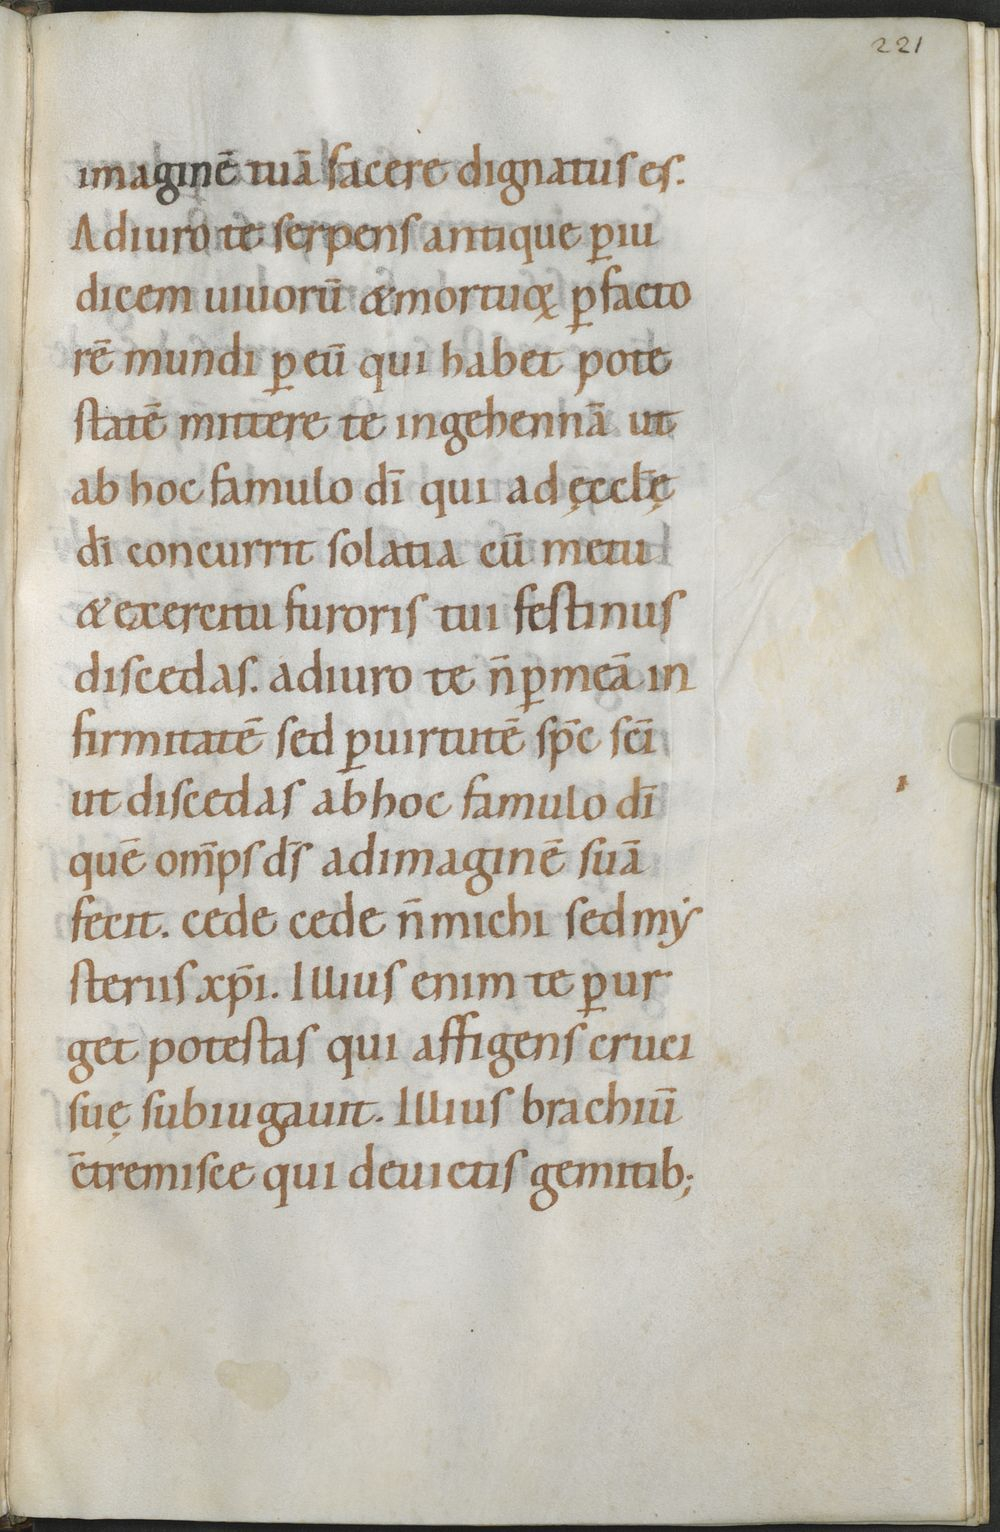 221
imaginē tuā facere dignatus es.
Adiuro te serpens antique ꝑ iu
dicem uiuorū & mortuoꝝ ꝑ facto
rē mundi ꝑ eū qui habet pote
statē mittere te in gehennā ut
ab hoc famulo dī qui ad ęccłę
dī concurrit solatia cū metu
& exercitu furoris tui festinus
discedas. adiuro te n̄ ꝑ meā in
firmitatē sed ꝑ uirtutē sp̄c sc̄i
ut discedas ab hoc famulo dī
quē om̄ps ds̄ ad imaginē suā
fecit. cede cede n̄ michi sed mẏ
steriis xp̄i. Illius enim te ꝑ ur
get potestas qui affigens cruci
suę subiugauit. Illius brachiū
c̄tremisce qui deuictis gemitib;